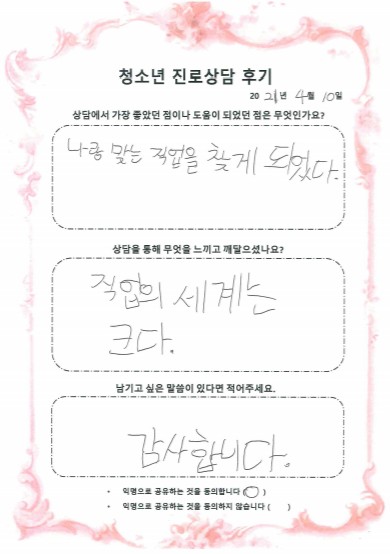 청소년 진로상담 후기
2021년 4월 10일
상담에서 가장 좋았던 점이나 도움이 되었던 점은 무엇인가요?
나랑 맞는 직업을 찾게 되었다.
상담을 통해 무엇을 느끼고 깨달으셨나요?
직업의 세계는
크다.
남기고 싶은 말씀이 있다면 적어주세요.
감사합니다.
• 익명으로 공유하는 것을 동의합니다 (O)
• 익명으로 공유하는 것을 동의하지 않습니다 ( )